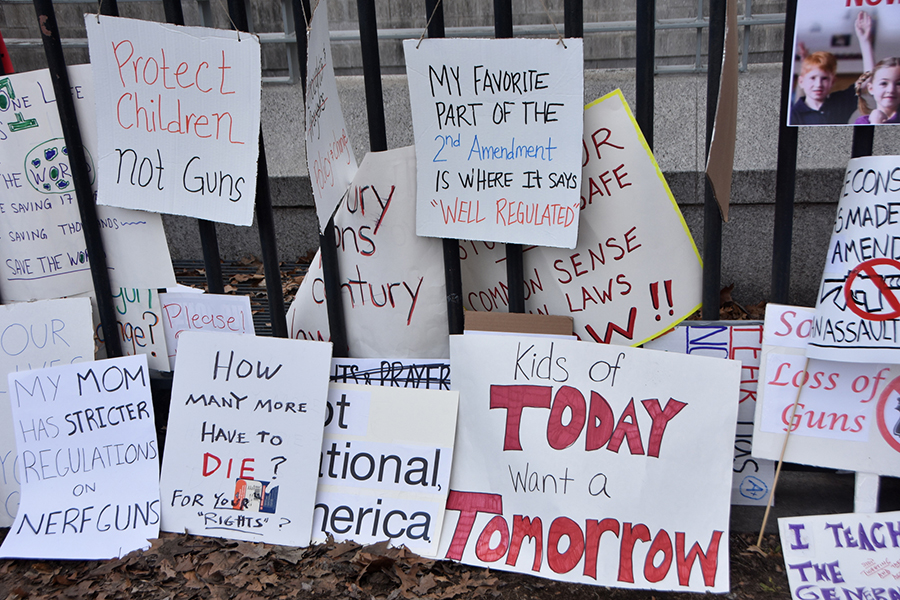 NOW
Protect
Children
not Guns
MY FAVORITE
PART OF THE
2nd Amendment
IS WHERE IT SAYS
"WELL REGULATED"
ONE LIFE
THE WOR
SAVING 17
SAVING THOUSANDS
SAVE THE WOR
SAFE
COMMON SENSE
LAWS !!
Century
W
Please!
OUR
MY MOM
HAS STRICTER
REGULATIONS
ON
NERF GUNS
HOW
MANY MORE
HAVE TO
DIE?
FOR YOUR
"RIGHTS"?
& PRAYER
ot
ational,
merica
Kids of
TODAY
Want a
TOMORROW
MADE
AMEND
ASSAULT
Loss of
Guns
I TEACH
THE
GENERA